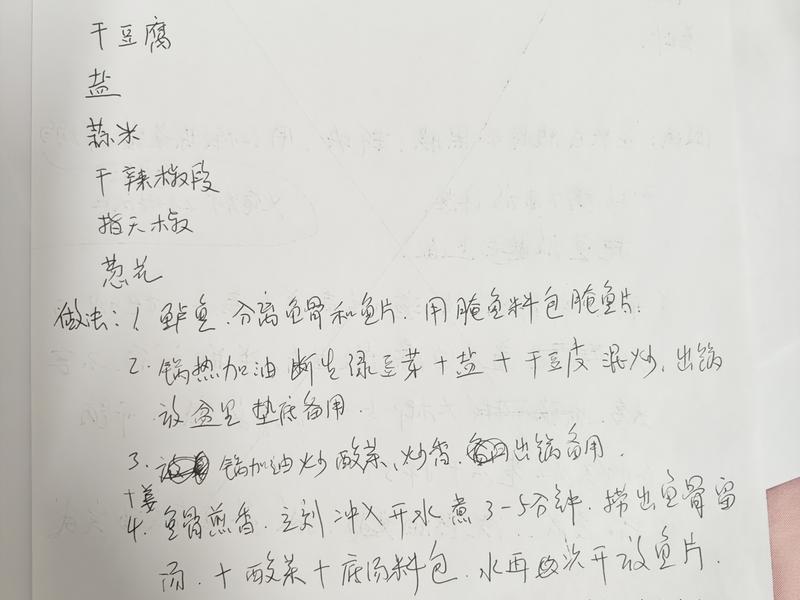 干豆腐
盐
蒜米
干辣椒段
指天椒
葱花
做法：1 鲈鱼、分离鱼骨和鱼片. 用腌鱼料包腌鱼片.
2. 锅热加油 断生绿豆芽+盐+干豆皮 混炒, 出锅
放盆里 垫底备用.
3. 锅加油炒酸菜, 炒香. 出锅备用.
+姜
4. 鱼骨煎香. 立刻冲入开水煮3-5分钟. 捞出鱼骨留
汤. +酸菜+底汤料包. 水再次开放鱼片.